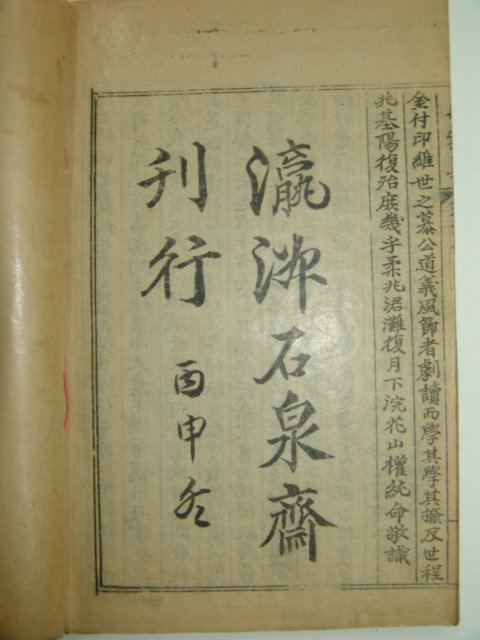 付印維世之慕公道義風節者劇讀而學其學其撥反世程
兆基陽復殆庶幾乎柔兆涒灘復月下浣花山權純命敬識
瀛石泉齋
刊行 丙申冬